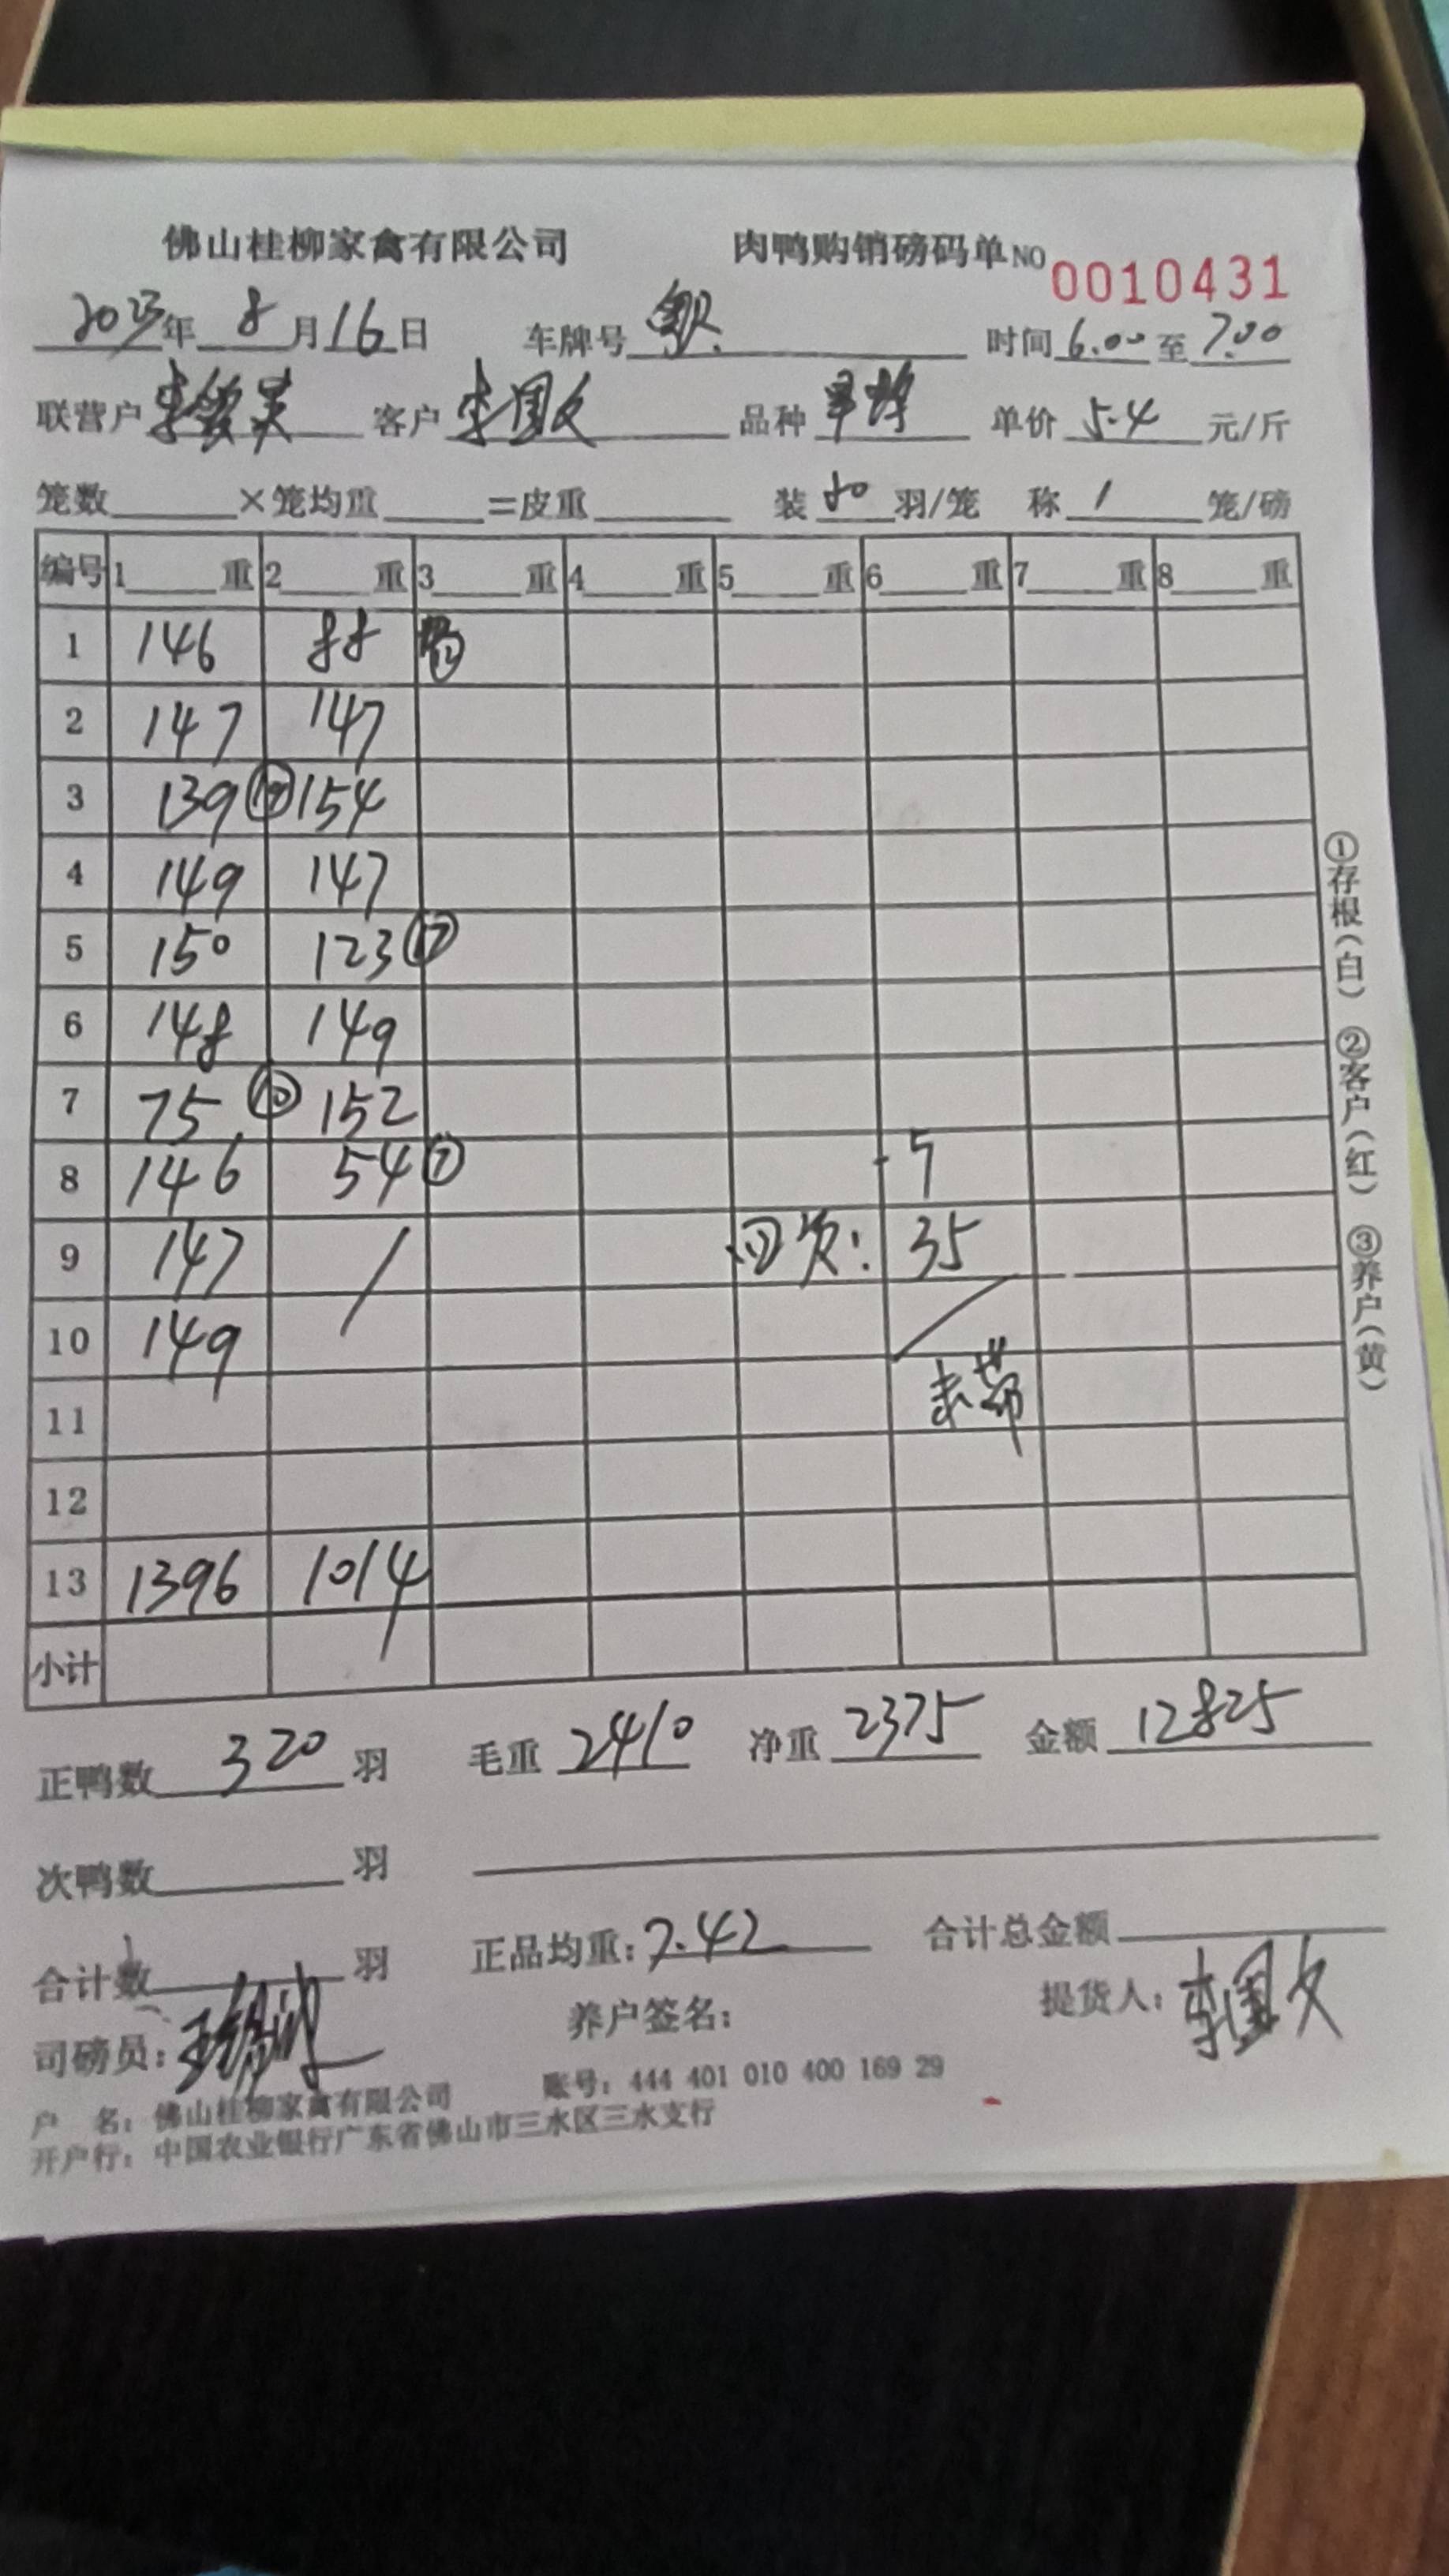 佛山桂柳家禽有限公司 肉鸭购销磅码单 NO 0010431
2023年 8 月 16 日 车牌号 时间 6.00 至 7.00
联营户 客户 李国文 品种 单价 5.4 元/斤
笼数 ×笼均重 =皮重 装 羽/笼 称 1 笼/磅
编号 1 重 2 重 3 重 4 重 5 重 6 重 7 重 8 重
1 146 88
2 147 147
3 139 154
4 149 147
5 150 123 ⑰
6 148 149
7 75 ⑩ 152
8 146 54 ⑦ -5
9 147 / 35
10 149
11 未带
12
13 1396 1014
小计
正鸭数 320 羽 毛重 2410 净重 2375 金额 12825
次鸭数 羽
合计数 羽 正品均重: 7.42 合计总金额
司磅员: 养户签名: 提货人: 李国文
户 名: 佛山桂柳家禽有限公司 账号: 444 401 010 400 169 29
开户行: 中国农业银行广东省佛山市三水区三水支行
①存根(白) ②客户(红) ③养户(黄)